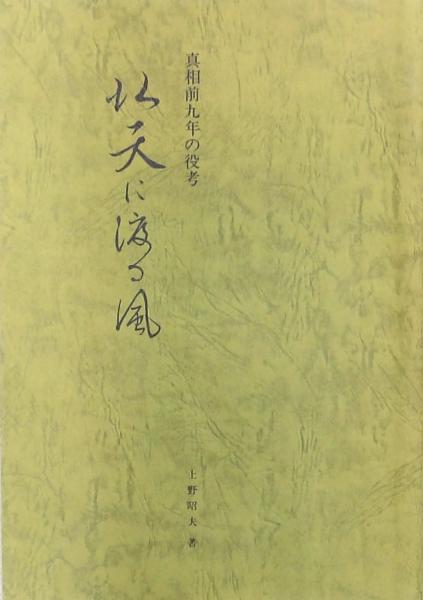 真相前九年の役考
北天に渡る風
上野昭夫著